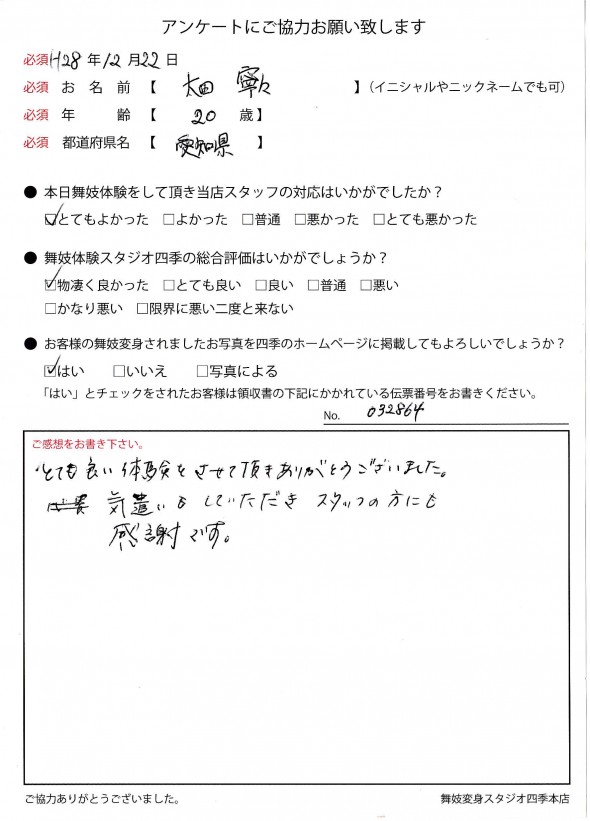 アンケートにご協力お願い致します
必須 H28年12月22日
必須 お 名 前 【 太田 寧々 】（イニシャルやニックネームでも可）
必須 年 齢 【 20 歳】
必須 都道府県名 【 愛知県 】
● 本日舞妓体験をして頂き当店スタッフの対応はいかがでしたか？
☑とてもよかった □よかった □普通 □悪かった □とても悪かった
● 舞妓体験スタジオ四季の総合評価はいかがでしょうか？
☑物凄く良かった □とても良い □良い □普通 □悪い
□かなり悪い □限界に悪い二度と来ない
● お客様の舞妓変身されましたお写真を四季のホームページに掲載してもよろしいでしょうか？
☑はい □いいえ □写真による
「はい」とチェックをされたお客様は領収書の下記にかかれている伝票番号をお書きください。
No. 032864
ご感想をお書き下さい。
とても良い体験をさせて頂きありがとうございました。
気遣いもしていただき スタッフの方にも
感謝です。
ご協力ありがとうございました。
舞妓変身スタジオ四季本店